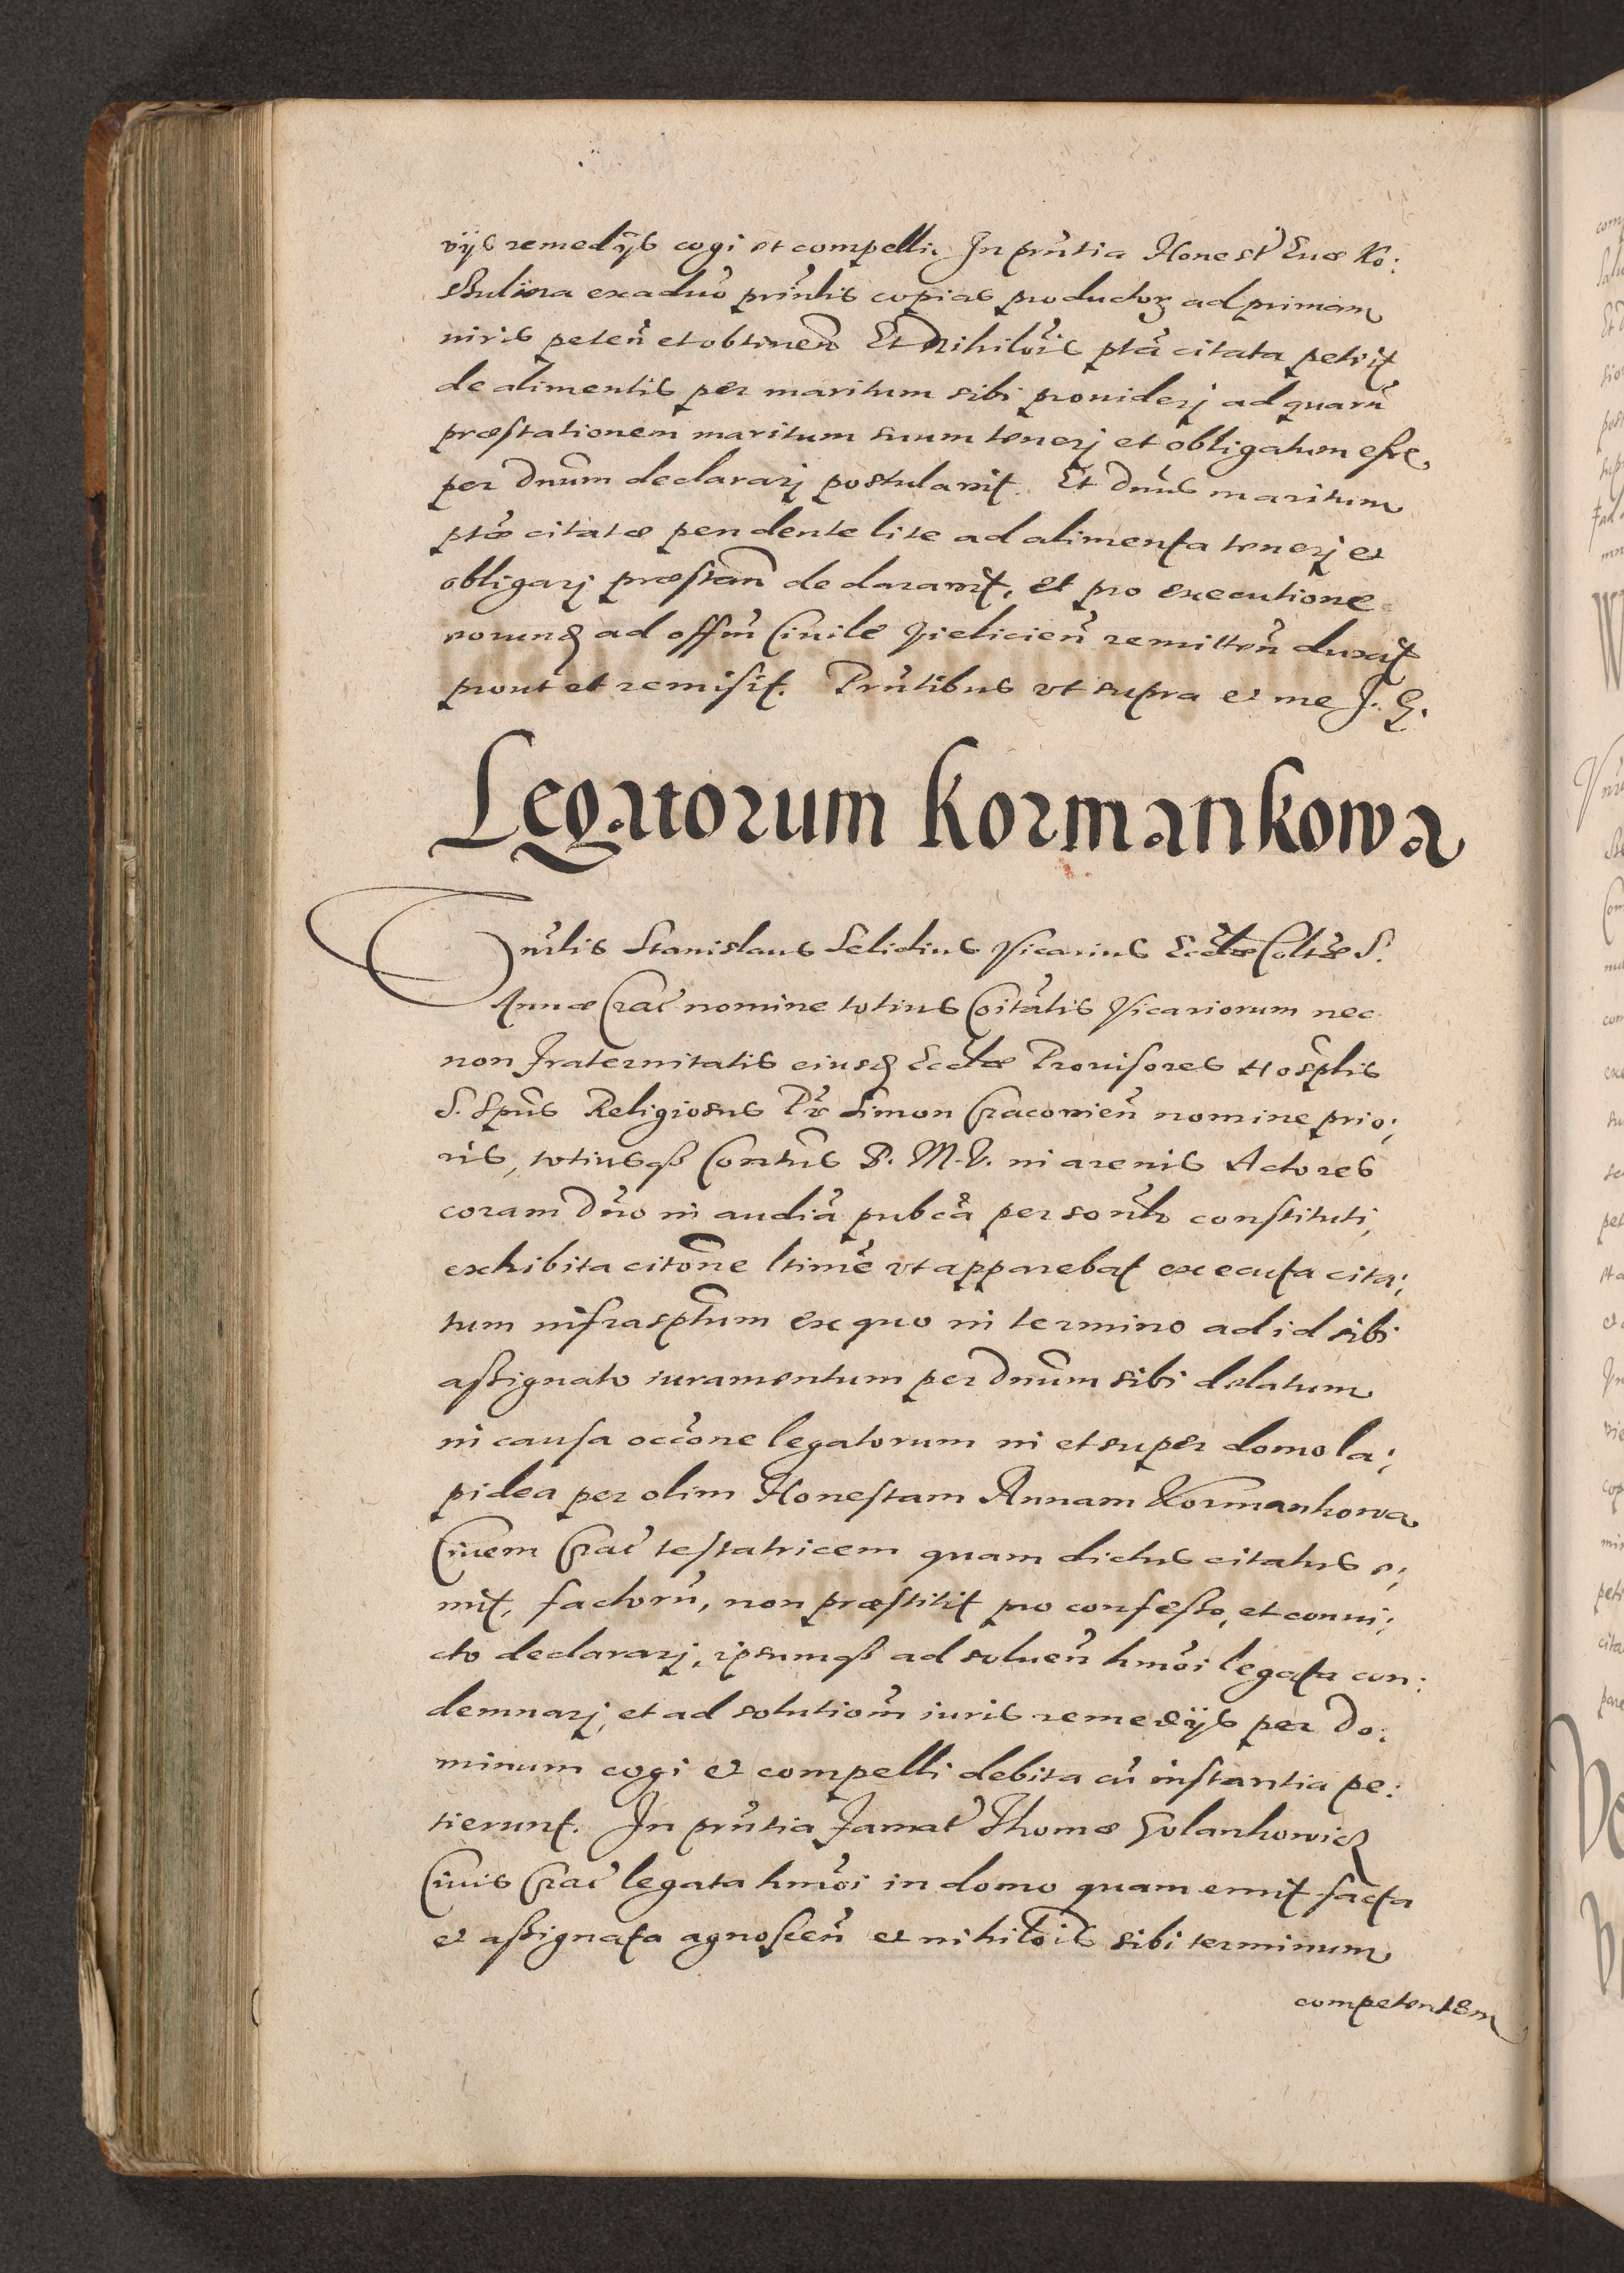 vijs remedijs cogi et compelli. In prñtia Honest Euæ Ko:
stulina ex aduo prinlis copias productor ad primam
niris peteñ et obtineñ Et Nihilõis ptã citata petijt
de alimentis per maritum sibi prouiderj ad quarũ
præstationem maritum suum tenerj et obligatum esse
per Dnum declararj postulauit. Et Dñus maritum
ptæ citatæ pendente lite ad alimenta tenerj et
obligarj præstañ declarauit, et pro executione
eorundq ad offm Ciuile Vielicieñ remitteñ duxit
prout et remisit. Prñtibus vt supra et me J. G.
Legatorum Kormankowa
Dñilis Stanislaus Selidius Vicarius Eccłæ Colłæ S.
Annæ Crac nomine totius Cõitãtis Vicariorum nec
non Fraternitatis eiusdq Eccłæ Prouisores Hosplis
S. Spũs Religiosus Pr Simon Cracouieñ nomine prio;
ris, totiusq Conuẽtus B. M. V. in arenis Actores
coram Dño in audiã pubcã personlr constituti,
exhibita citõne ltimẽ vt apparebat executa cita;
tum infrasptum ex quo in termino ad id sibi
assignato iuramentum per Dnum sibi delatum
in causa occõne legatorum in et super domo la;
pidea per olim Honestam Annam Kormankowa
Ciuem Crac testatricem quam dictus citatus e;
mit, factorũ, non præstitit pro confesso, et conui;
cto declararj, ipsumq ad solueñ hmõi legata con:
demnarj, et ad solutiom iuris remedijs per Do:
minum cogi et compelli debita cũ instantia pe:
tierunt. In prñtia Famat Thomæ Golankowicz
Ciuis Crac legata hmõi in domo quam emit facta
et assignata agnosceñ et nihilõis sibi terminum
competentem